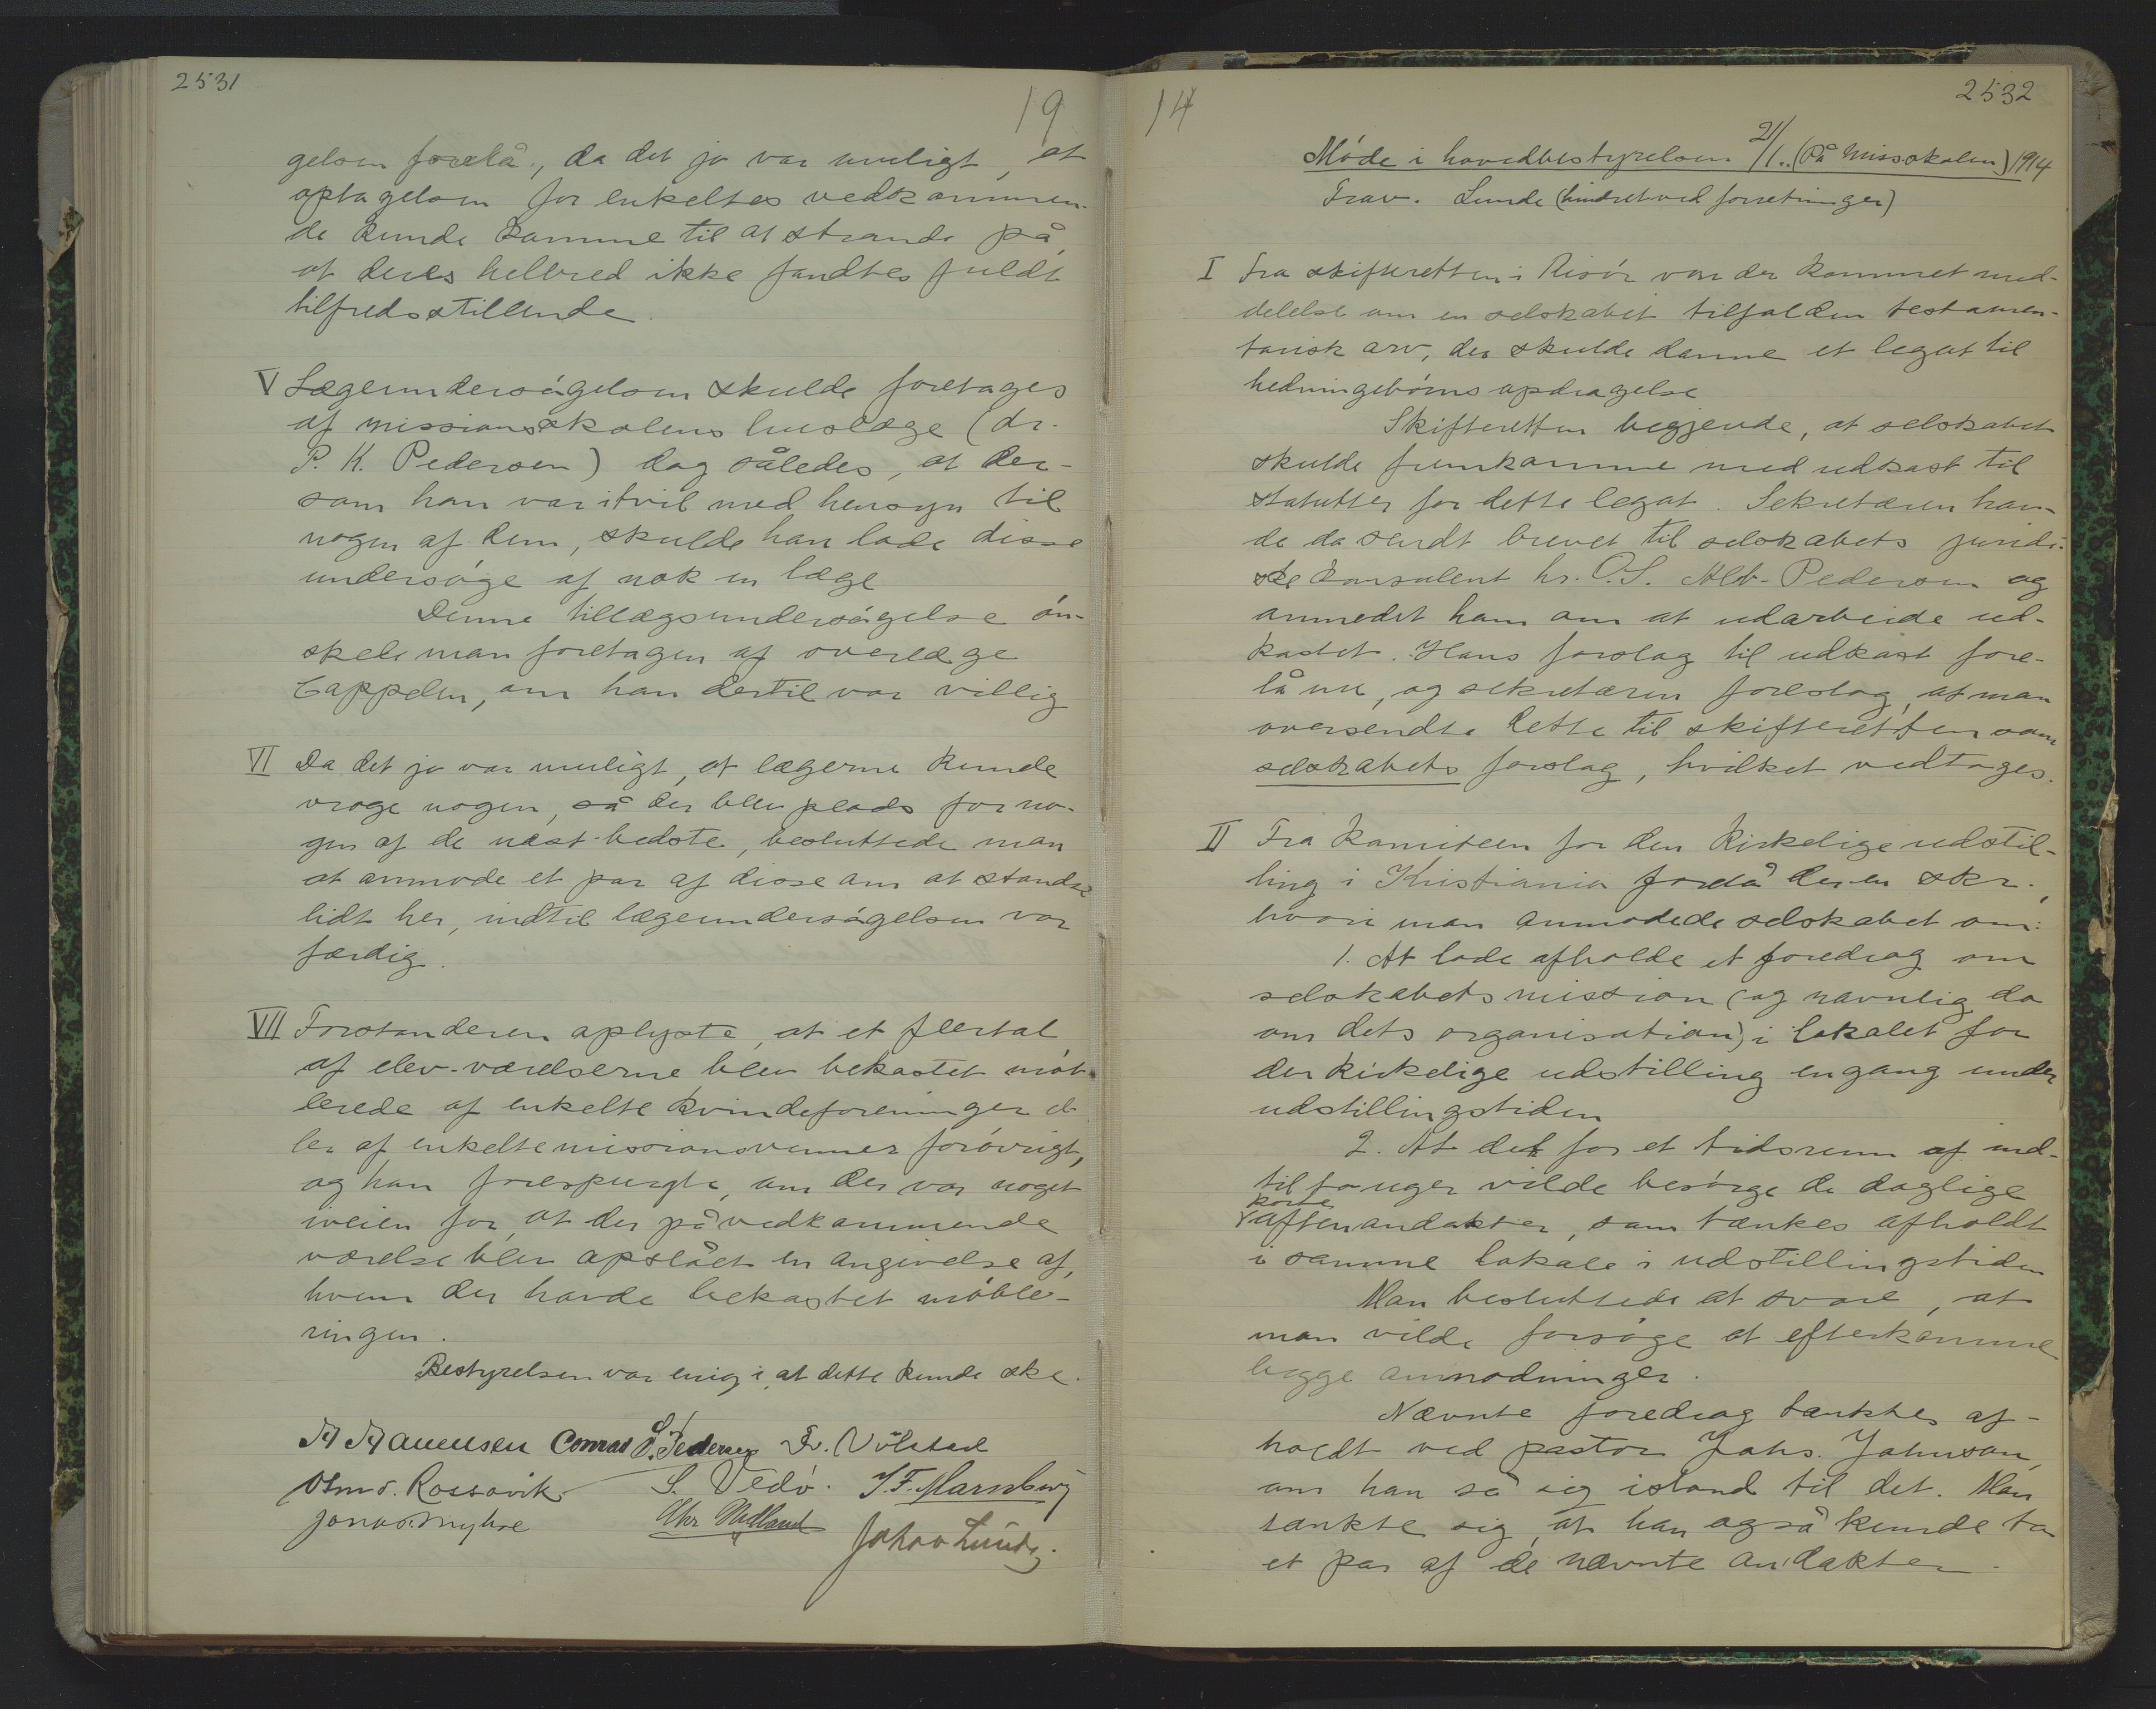 2531
19
gelsen forelå, da det jo var muligt, at
optagelsen for enkeltes vedkommen-
de kunde komme til at strande på,
at deres helbred ikke fandtes fuldt
tilfredsstillende.
V Lægeundersøgelsen skulde foretages
af missionsskolens huslæge (dr.
P. K. Pedersen) dog således, at der-
som han var itvil med hensyn til
nogen af dem, skulde han lade disse
undersøge af nok en læge
Denne tillægsundersøgelse øn-
skede man foretagen af overlæge
Cappelen, om han dertil var villig
VI Da det jo var muligt, at lægerne kunde
vrage nogen, så der blev plads for no-
gen af de næst-bedste, besluttede man
at anmode et par af disse om at standse
lidt her, indtil lægeundersøgelsen var
færdig.
VII Forstanderen oplyste, at et flertal
af elev-værelserne blev bekostet møb-
lerede af enkelte kvindeforeninger el-
ler af enkelte missionsvenner forøvrigt,
og han forespurgte, om der var noget
iveien for, at der på vedkommende
værelse blev opslået en angivelse af,
hvem der havde bekostet møble-
ringen.
Bestyrelsen var enig i, at dette kunde ske.
Conrad S. Pedersen
Osm. Rossavik S. Vedø.
Jonas Myhre Chr Midland Johan Lunde.
14
2532
Møde i hovedbestyrelsen 21/1.. (På missskolen) 1914
Frav. Lunde (hindret ved forretninger)
I Fra skifteretten i Risør var der kommet med-
delelse om en selskabet tilfalden testamen-
tarisk arv, der skulde danne et legat til
hedningebørns opdragelse
Skifteretten begjerede, at selskabet
skulde fremkomme med udkast til
statutter for dette legat. Sekretæren hav-
de da sendt brevet til selskabets juridi-
ske konsulent hr. O.S. Alb-Pedersen og
anmodet ham om at udarbeide ud-
kastet. Hans forslag til udkast fore-
lå nu, og sekretæren foreslog, at man
oversendte dette til skifteretten som
selskabets forslag, hvilket vedtoges.
II Fra komiteen for den kirkelige udstil-
ling i Kristiania forelå der en skr.,
hvori man anmodede selskabet om:
1. At lade afholde et foredrag om
selskabets mission (og navnlig da
om dets organisation) i lokalet for
den kirkelige udstilling engang under
udstillingstiden
2. At det for et tidsrum af ind-
til to uger vilde besørge de daglige
korte
aftenandakter, som tænkes afholdt
i samme lokale i udstillingstiden
Man besluttede at svare, at
man vilde forsøge at efterkomme
begge anmodninger.
Nævnte foredrag tænktes af-
holdt ved pastor Johs. Johnson,
om han så sig istand til det. Man
tænkte sig, at han også kunde ta
et par af de nævnte andakter.